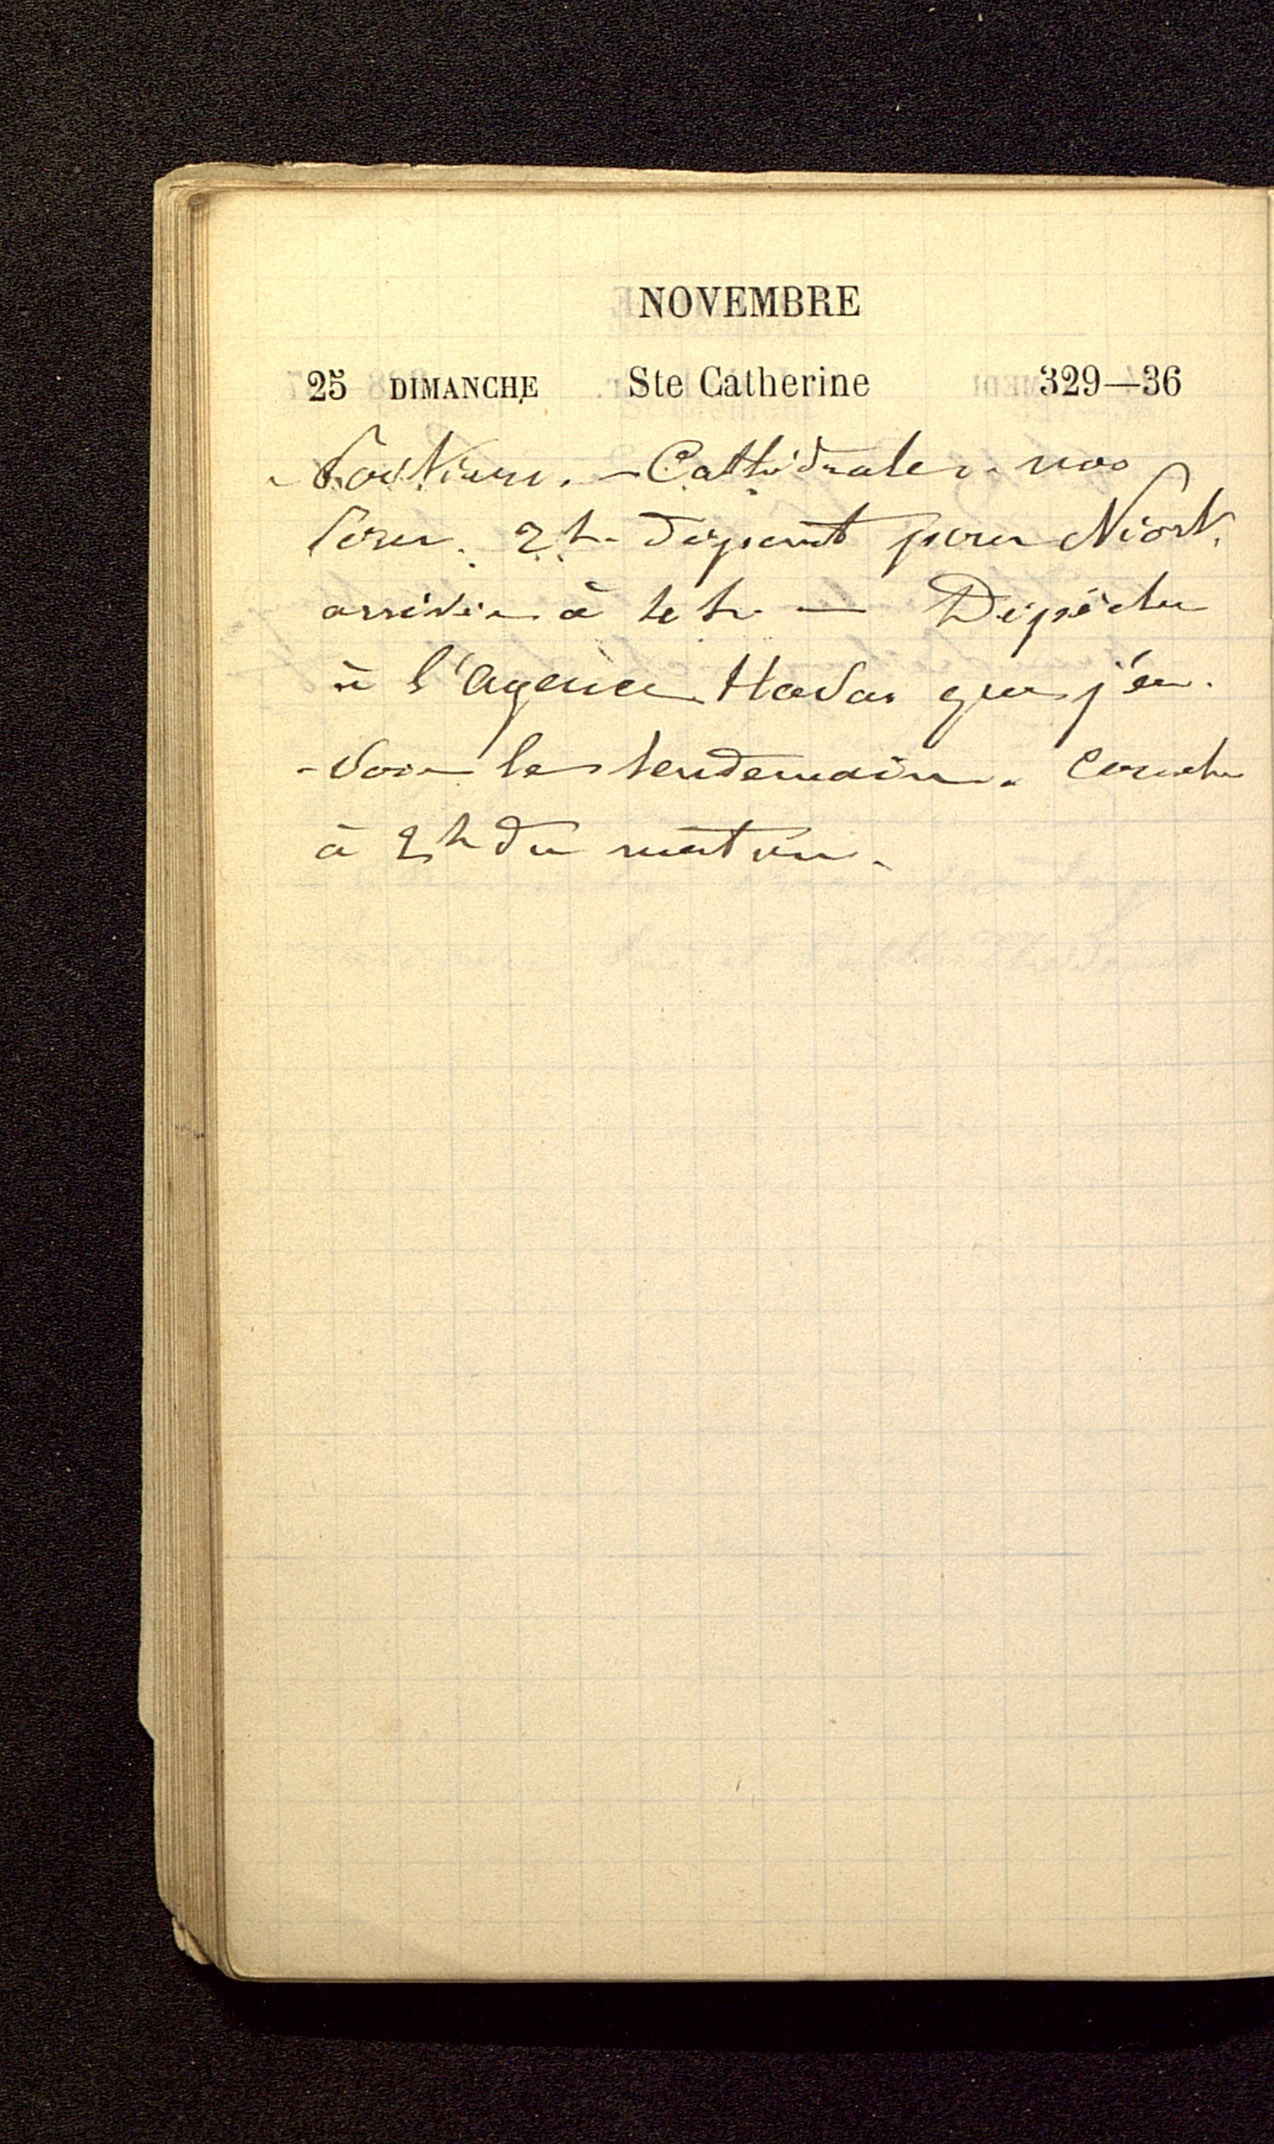 NOVEMBRE
25 DIMANCHE Ste Catherine 329—36
Cathédrale. nos
2h. départ pour Niort.
arrivée à 4 h. — Dépêche
à l'agence Havas que j'en-
-voie le lendemain. Couche
à 2h du matin.